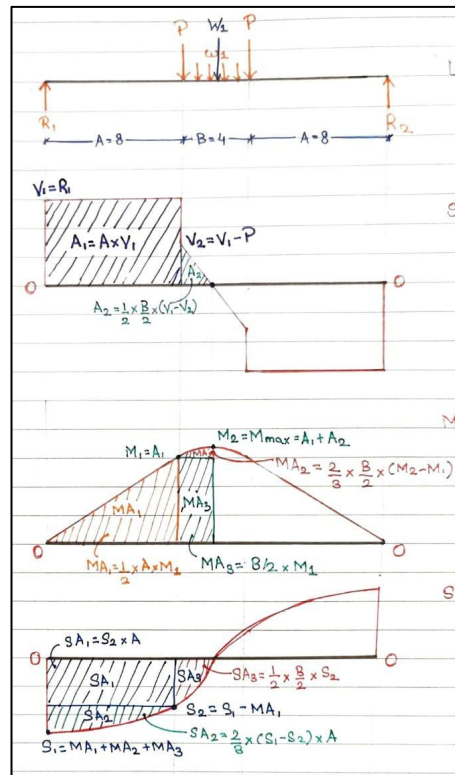 P W1 P
ω1
L
R1 R2
A=8 B=4 A=8
V1=R1
S
A1=A×V1
V2=V1-P
A2
O O
A2=1/2×B/2×(V1-V2)
M
M2=Mmax=A1+A2
M1=A1
MA2
MA2=2/3×B/2×(M2-M1)
MA1
MA3
O O
MA1=1/2×A×M1
MA3=B/2×M1
S
SA1=S2×A
O O
SA1
SA3
SA3=1/2×B/2×S2
SA2
S2=S1-MA1
SA2=2/3×(S1-S2)×A
S1=MA1+MA2+MA3